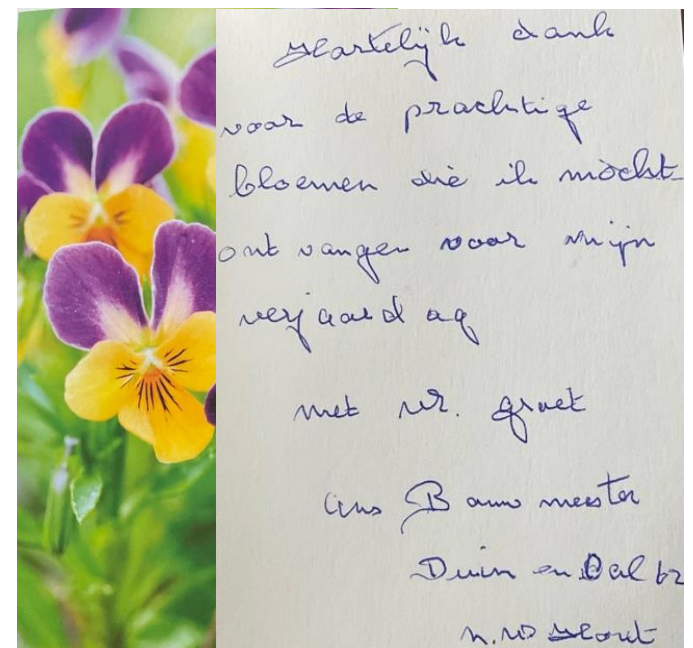 Hartelijk dank
voor de prachtige
bloemen die ik mocht
ontvangen voor mijn
verjaardag
met vr. groet
Ans Bouwmeester
Duin en Dal 62
N.W Hout